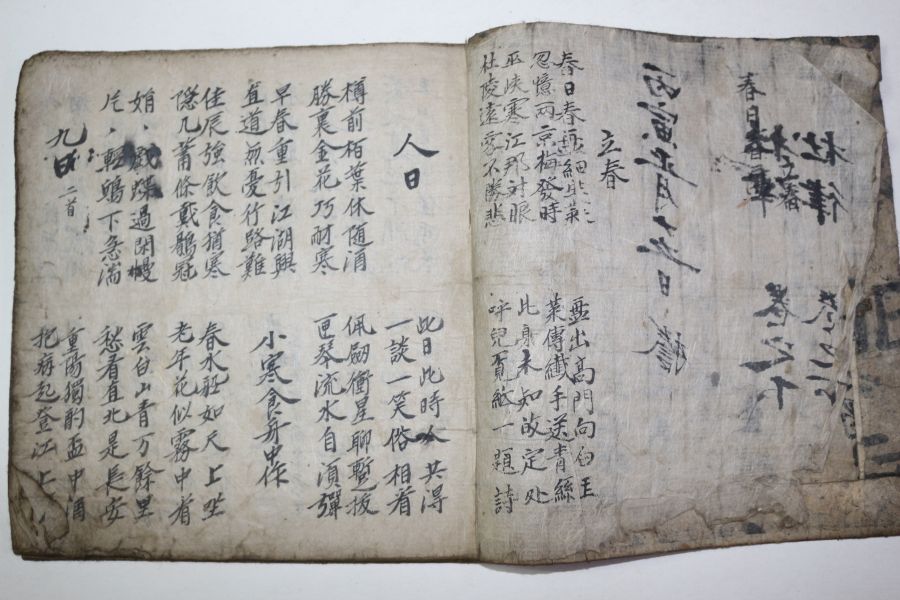 杜律
春日
丙寅正月十九日
立春
春日春盤細生菜
忽憶兩京梅發時
盤出高門向白玉
菜傳纖手送青絲
巫峽寒江那對眼
杜陵遠客不勝悲
此身未知故定处
呼兒覓紙一題詩
人日
此日此時人共得
一談一笑俗相看
樽前栢葉休随酒
勝裏金花巧耐寒
佩劒衝星聊暫拔
匣琴流水自湏彈
早春重引江湖興
直道無憂行路難
小寒食舟中作
佳辰強飲食猶寒
隐几蕭條戴鶡冠
春水舡如天上坐
老年花似霧中看
娟〻戱蝶過閑幔
片〻輕鷗下急湍
雲白山青万餘里
愁看直北是長安
九日 二首
重陽獨酌盃中酒
抱病起登江上